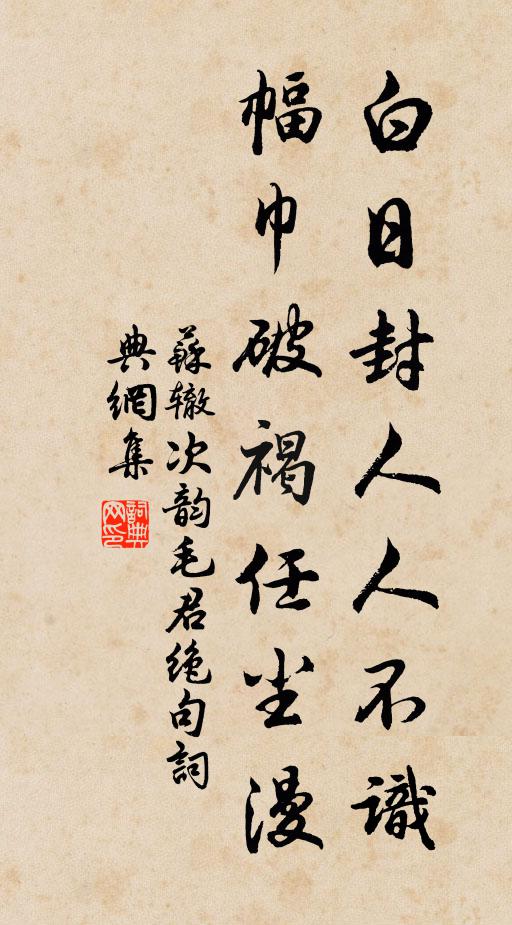 白日封人人不識
幅巾破褐任尘漫
蘇辙次韵毛君绝句詞
典網集
詞典
网印